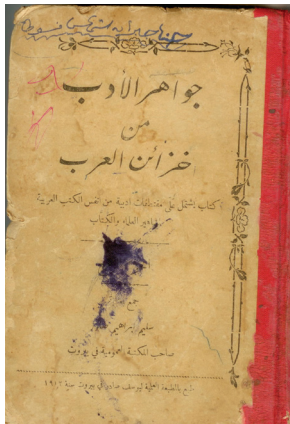 جواهر الأدب
من
خزائن العرب
كتاب يشتمل على مقتطفات ادبية من انفس الكتب العربية
العلماء والكتاب
جمع
سليم ابراهيم
صاحب المكتبة العمومية في بيروت
طبع بالمطبعة ليوسف صادر في بيروت سنة ١٩١٢